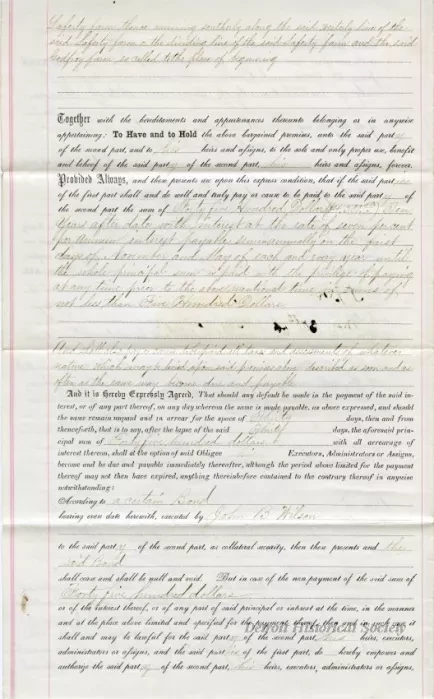 Lafferty farm thence running southerly along the said westerly line of the
said Lafferty farm or the dividing line of the said Lafferty farm and the said
Godfroy farm so called to the place of beginning
Together with the hereditaments and appurtenances thereunto belonging or in anywise
appertaining: To Have and to Hold the above bargained premises, unto the said party
of the second part, and to his heirs and assigns, to the sole and only proper use, benefit
and behoof of the said party of the second part, his heirs and assigns, forever.
Provided Always, and these presents are upon this express condition, that if the said parties
of the first part shall and do well and truly pay or cause to be paid to the said party of
the second part the sum of Forty five Hundred Dollars in Ten
Years after date with interest at the rate of seven per cent
per annum interest payable semi annually on the first
days of November and May of each and every year until
the whole principal sum is paid with the privilege of paying
at any time prior to the above mentioned time in sums of
not less than Five Hundred Dollars
And shall
nature which may be laid upon said premises above described as soon and as
often as the same may become due and payable
And it is hereby Expressly Agreed, That should any default be made in the payment of the said in-
terest, or of any part thereof, on any day whereon the same is made payable, as above expressed, and should
the same remain unpaid and in arrear for the space of Thirty days, then and from
thenceforth, that is to say, after the lapse of the said Thirty days, the aforesaid prin-
cipal sum of Forty five hundred dollars with all arrearage of
interest thereon, shall at the option of said Obligee his Executors, Administrators or Assigns,
become and be due and payable immediately thereafter, although the period above limited for the payment
thereof may not then have expired, anything thereinbefore contained to the contrary thereof in anywise
notwithstanding:
According to a certain Bond
bearing even date herewith, executed by John B Wilson
to the said party of the second part, as collateral security, then these presents and the
said Bond
shall cease and shall be null and void. But in case of the non payment of the said sum of
Forty five hundred dollars
or of the interest thereof, or of any part of said principal or interest at the time, in the manner
and at the place above limited and specified for the payment thereof, then and in such case it
shall and may be lawful for the said party of the second part, his heirs, executors,
administrators or assigns, and the said parties of the first part, do hereby empower and
authorize the said party of the second part, his heirs, executors, administrators or assigns,
Detroit Historical Society